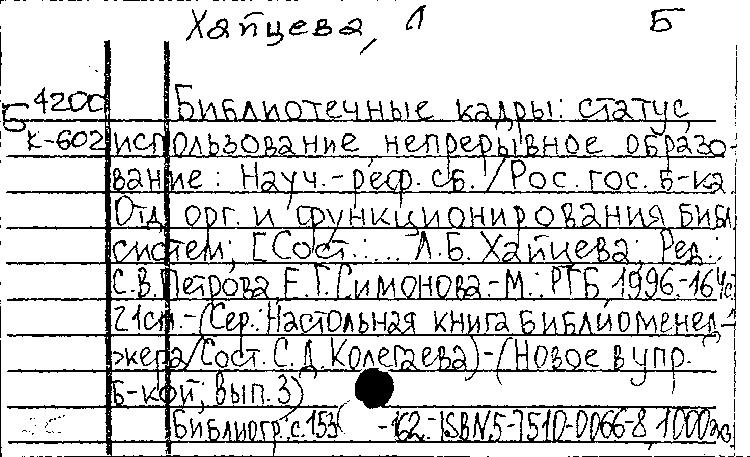 Хапцева, Л Б
Б 4200 Библиотечные кадры: статус,
К-602 использование непрерывное образо-
вание: Науч.-реф. сб. / Рос. гос. б-ка
Отд. орг. и функционирования библ.
систем; [Сост.: ... Л.Б. Хапцева; Ред.:
С.В. Петрова Е.Г. Симонова.-М.: РГБ, 1996.-164с
21см.-(Сер.: Настольная книга библиоменед-
жера/Сост. С.Д. Колегаева)-(Новое в упр.
б-кой; Вып. 3)
Библиогр.: с.153 -162.-ISBN 5-7510-0066-8, 1000экз